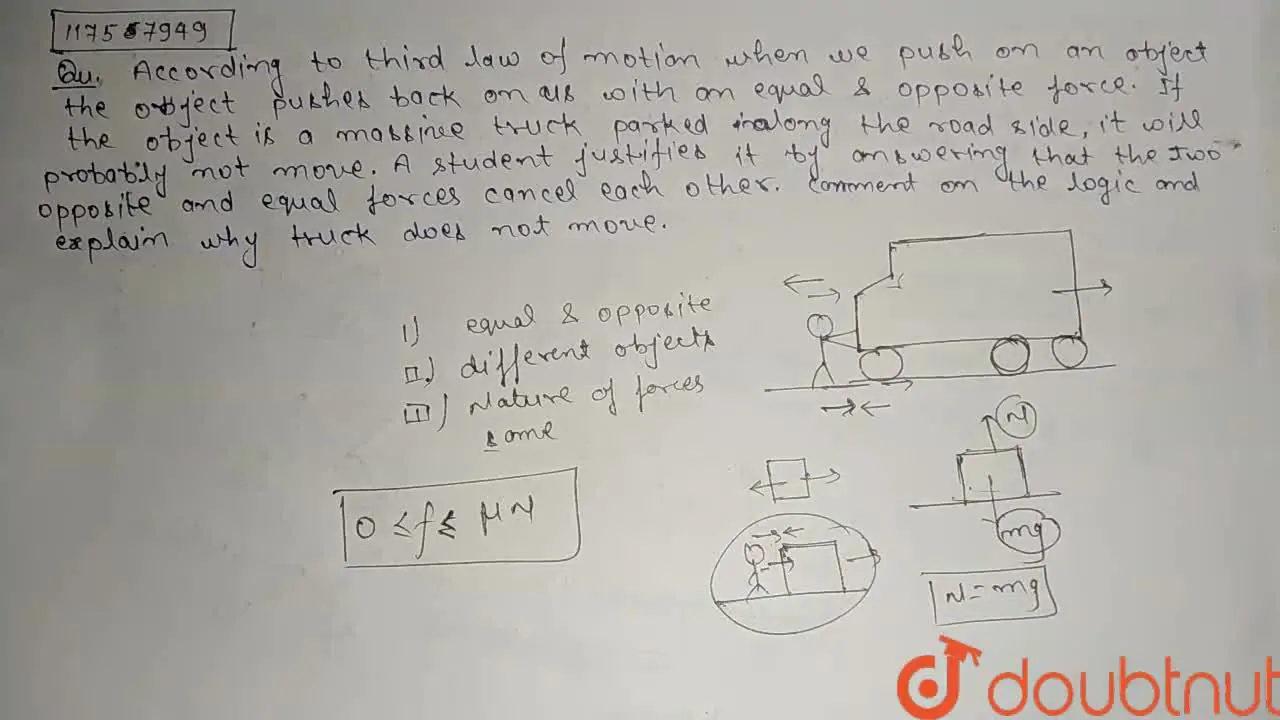 11757949
Qu. According to third law of motion when we push on an object
the object pushes back on us with an equal & opposite force. If
the object is a massive truck parked along the road side, it will
probably not move. A student justifies it by answering that the two
opposite and equal forces cancel each other. Comment on the logic and
explain why truck does not move.
I) equal & opposite
II) different objects
III) Nature of forces
same
0 ≤ f ≤ μN
N
mg
N = mg
doubtnut